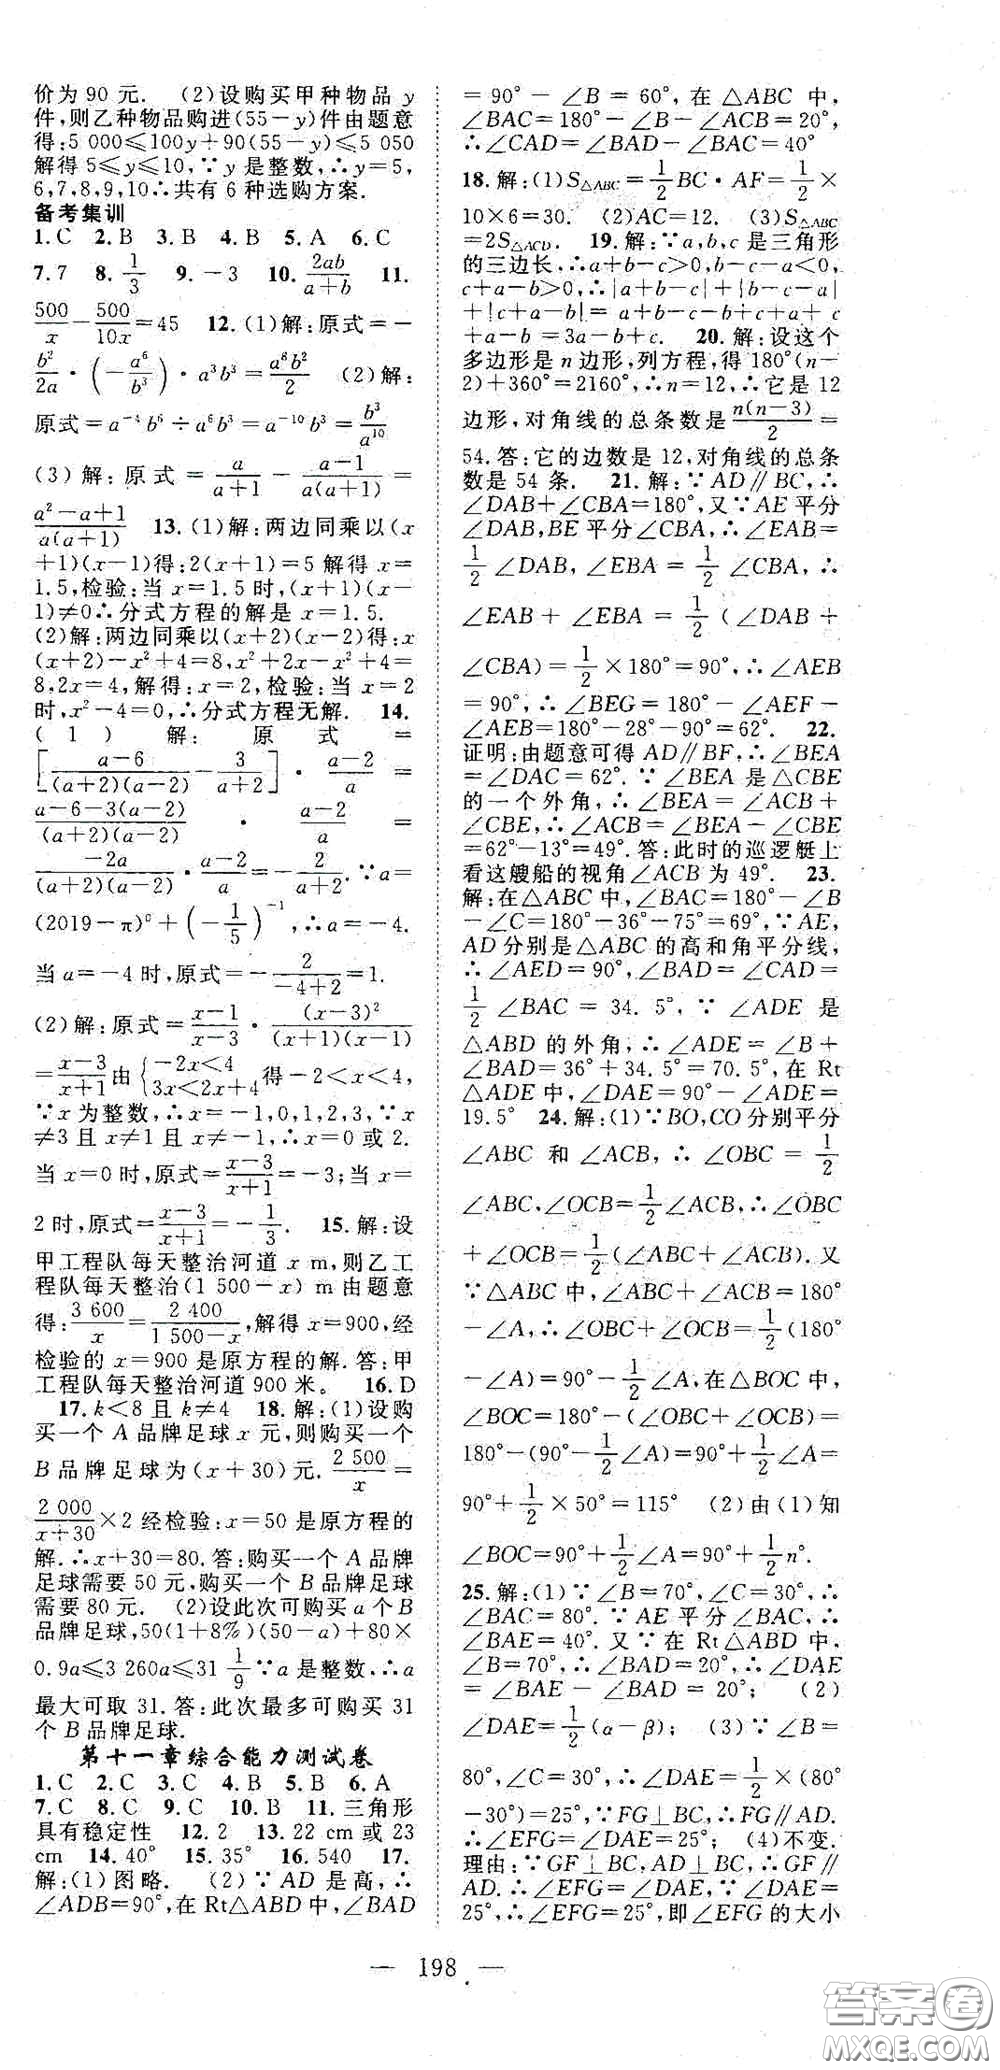 价为 90 元. (2)设购买甲种物品 y
件,则乙种物品购进(55－y)件由题意
得:5 000≤100y＋90(55－y)≤5 050
解得 5≤y≤10,∵y 是整数,∴y=5,
6,7,8,9,10∴共有 6 种选购方案.
备考集训
1.C 2.B 3.B 4.B 5.A 6.C
7.7 8.1/3 9.－3 10.2ab/(a＋b) 11.
500/x－500/10x=45 12.(1)解:原式=－
b²/2a·(－a⁶/b³)·a³b³=a⁸b²/2 (2)解:
原式=a⁻⁴b⁶÷a⁶b³=a⁻¹⁰b³=b³/a¹⁰
(3)解:原式=a/(a＋1)－(a－1)/a(a＋1)=
(a²－a＋1)/a(a＋1) 13.(1)解:两边同乘以(x
＋1)(x－1)得:2(x＋1)=5 解得 x=
1.5,检验:当 x=1.5 时,(x＋1)(x－
1)≠0∴分式方程的解是 x=1.5.
(2)解:两边同乘以(x＋2)(x－2)得:x
(x＋2)－x²＋4=8,x²＋2x－x²＋4=
8,2x=4,解得:x=2,检验:当 x=2
时,x²－4=0,∴分式方程无解. 14.
(1)解:原式=
[(a－6)/(a＋2)(a－2)－3/(a＋2)]·(a－2)/a=
(a－6－3(a－2))/(a＋2)(a－2)·(a－2)/a=
－2a/(a＋2)(a－2)·(a－2)/a=－2/(a＋2).∵a=
(2019－π)⁰＋(－1/5)⁻¹,∴a=－4.
当 a=－4 时,原式=－2/(－4＋2)=1.
(2)解:原式=(x－1)/(x－3)·(x－3)²/(x＋1)(x－1)
=(x－3)/(x＋1)由{－2x<4 3x<2x＋4得－2<x<4,
∵x 为整数,∴x=－1,0,1,2,3,∵x
≠3 且 x≠1 且 x≠－1,∴x=0 或 2.
当 x=0 时,原式=(x－3)/(x＋1)=－3;当 x=
2 时,原式=(x－3)/(x＋1)=－1/3. 15.解:设
甲工程队每天整治河道 x m,则乙工
程队每天整治(1 500－x) m 由题意
得:3 600/x=2 400/(1 500－x),解得 x=900,经
检验的 x=900 是原方程的解.答:甲
工程队每天整治河道 900 米。 16.D
17.k<8 且 k≠4 18.解:(1)设购
买一个 A 品牌足球 x 元,则购买一个
B 品牌足球为(x＋30)元.2 500/x=
2 000/(x＋30)×2 经检验:x=50 是原方程的
解.∴x＋30=80.答:购买一个 A 品牌
足球需要 50 元,购买一个 B 品牌足球
需要 80 元. (2)设此次可购买 a 个 B
品牌足球,50(1＋8%)(50－a)＋80×
0.9a≤3 260a≤31 1/9∵a 是整数,∴a
最大可取 31.答:此次最多可购买 31
个 B 品牌足球.
第十一章综合能力测试卷
1.C 2.C 3.C 4.B 5.B 6.A
7.C 8.C 9.C 10.B 11.三角形
具有稳定性 12.2 13.22 cm 或 23
cm 14.40° 15.35° 16.540 17.
解:(1)图略. (2)∵AD 是高,∴
∠ADB=90°,在 Rt△ABD 中,∠BAD
=90°－∠B=60°,在△ABC 中,
∠BAC=180°－∠B－∠ACB=20°,
∴∠CAD=∠BAD－∠BAC=40°
18.解:(1)S△ABC=1/2BC·AF=1/2×
10×6=30. (2)AC=12. (3)S△ABC
=2S△ACD. 19.解:∵a,b,c 是三角形
的三边长,∴a＋b－c>0,b－c－a<0,
c＋a－b>0,∴|a＋b－c|＋|b－c－a|
＋|c＋a－b|=a＋b－c－b＋c＋a＋c
＋a－b=3a－b＋c. 20.解:设这个
多边形是 n 边形,列方程,得 180°(n－
2)＋360°=2160°,∴n=12,∴它是 12
边形,对角线的总条数是n(n－3)/2=
54.答:它的边数是 12,对角线的总条
数是 54 条. 21.解:∵AD∥BC,∴
∠DAB＋∠CBA=180°,又∵AE 平分
∠DAB,BE 平分∠CBA,∴∠EAB=
1/2∠DAB,∠EBA=1/2∠CBA,∴
∠EAB＋∠EBA=1/2(∠DAB＋
∠CBA)=1/2×180°=90°,∴∠AEB
=90°,∴∠BEG=180°－∠AEF－
∠AEB=180°－28°－90°=62°. 22.
证明:由题意可得 AD∥BF,∴∠BEA
=∠DAC=62°.∵∠BEA 是△CBE
的一个外角,∴∠BEA=∠ACB＋
∠CBE,∴∠ACB=∠BEA－∠CBE
=62°－13°=49°.答:此时的巡逻艇上
看这艘船的视角∠ACB 为 49°. 23.
解:在△ABC 中,∠BAC=180°－∠B
－∠C=180°－36°－75°=69°,∵AE,
AD 分别是△ABC 的高和角平分线,
∴∠AED=90°,∠BAD=∠CAD=
1/2∠BAC=34.5°,∵∠ADE 是
△ABD 的外角,∴∠ADE=∠B＋
∠BAD=36°＋34.5°=70.5°,在 Rt
△ADE 中,∠DAE=90°－∠ADE=
19.5° 24.解:(1)∵BO,CO 分别平分
∠ABC 和∠ACB,∴∠OBC=1/2
∠ABC,∠OCB=1/2∠ACB,∴∠OBC
＋∠OCB=1/2(∠ABC＋∠ACB).又
∵△ABC 中,∠ABC＋∠ACB=180°
－∠A,∴∠OBC＋∠OCB=1/2(180°
－∠A)=90°－1/2∠A,在△BOC 中,
∠BOC=180°－(∠OBC＋∠OCB)=
180°－(90°－1/2∠A)=90°＋1/2∠A=
90°＋1/2×50°=115° (2)由(1)知
∠BOC=90°＋1/2∠A=90°＋1/2n°.
25.解:(1)∵∠B=70°,∠C=30°,∴
∠BAC=80°.∵AE 平分∠BAC,∴
∠BAE=40°.又∵在 Rt△ABD 中,
∠B=70°,∴∠BAD=20°,∴∠DAE
=∠BAE－∠BAD=20°; (2)
∠DAE=1/2(α－β); (3)∵∠B=
80°,∠C=30°,∴∠DAE=1/2×(80°
－30°)=25°,∵FG⊥BC,∴FG∥AD.
∴∠EFG=∠DAE=25°; (4)不变.
理由:∵GF⊥BC,AD⊥BC,∴GF∥
AD.∴∠EFG=∠DAE,∵∠DAE=
25°,∴∠EFG=25°,即∠EFG 的大小
— 198 —
答案圈
MXQE.COM